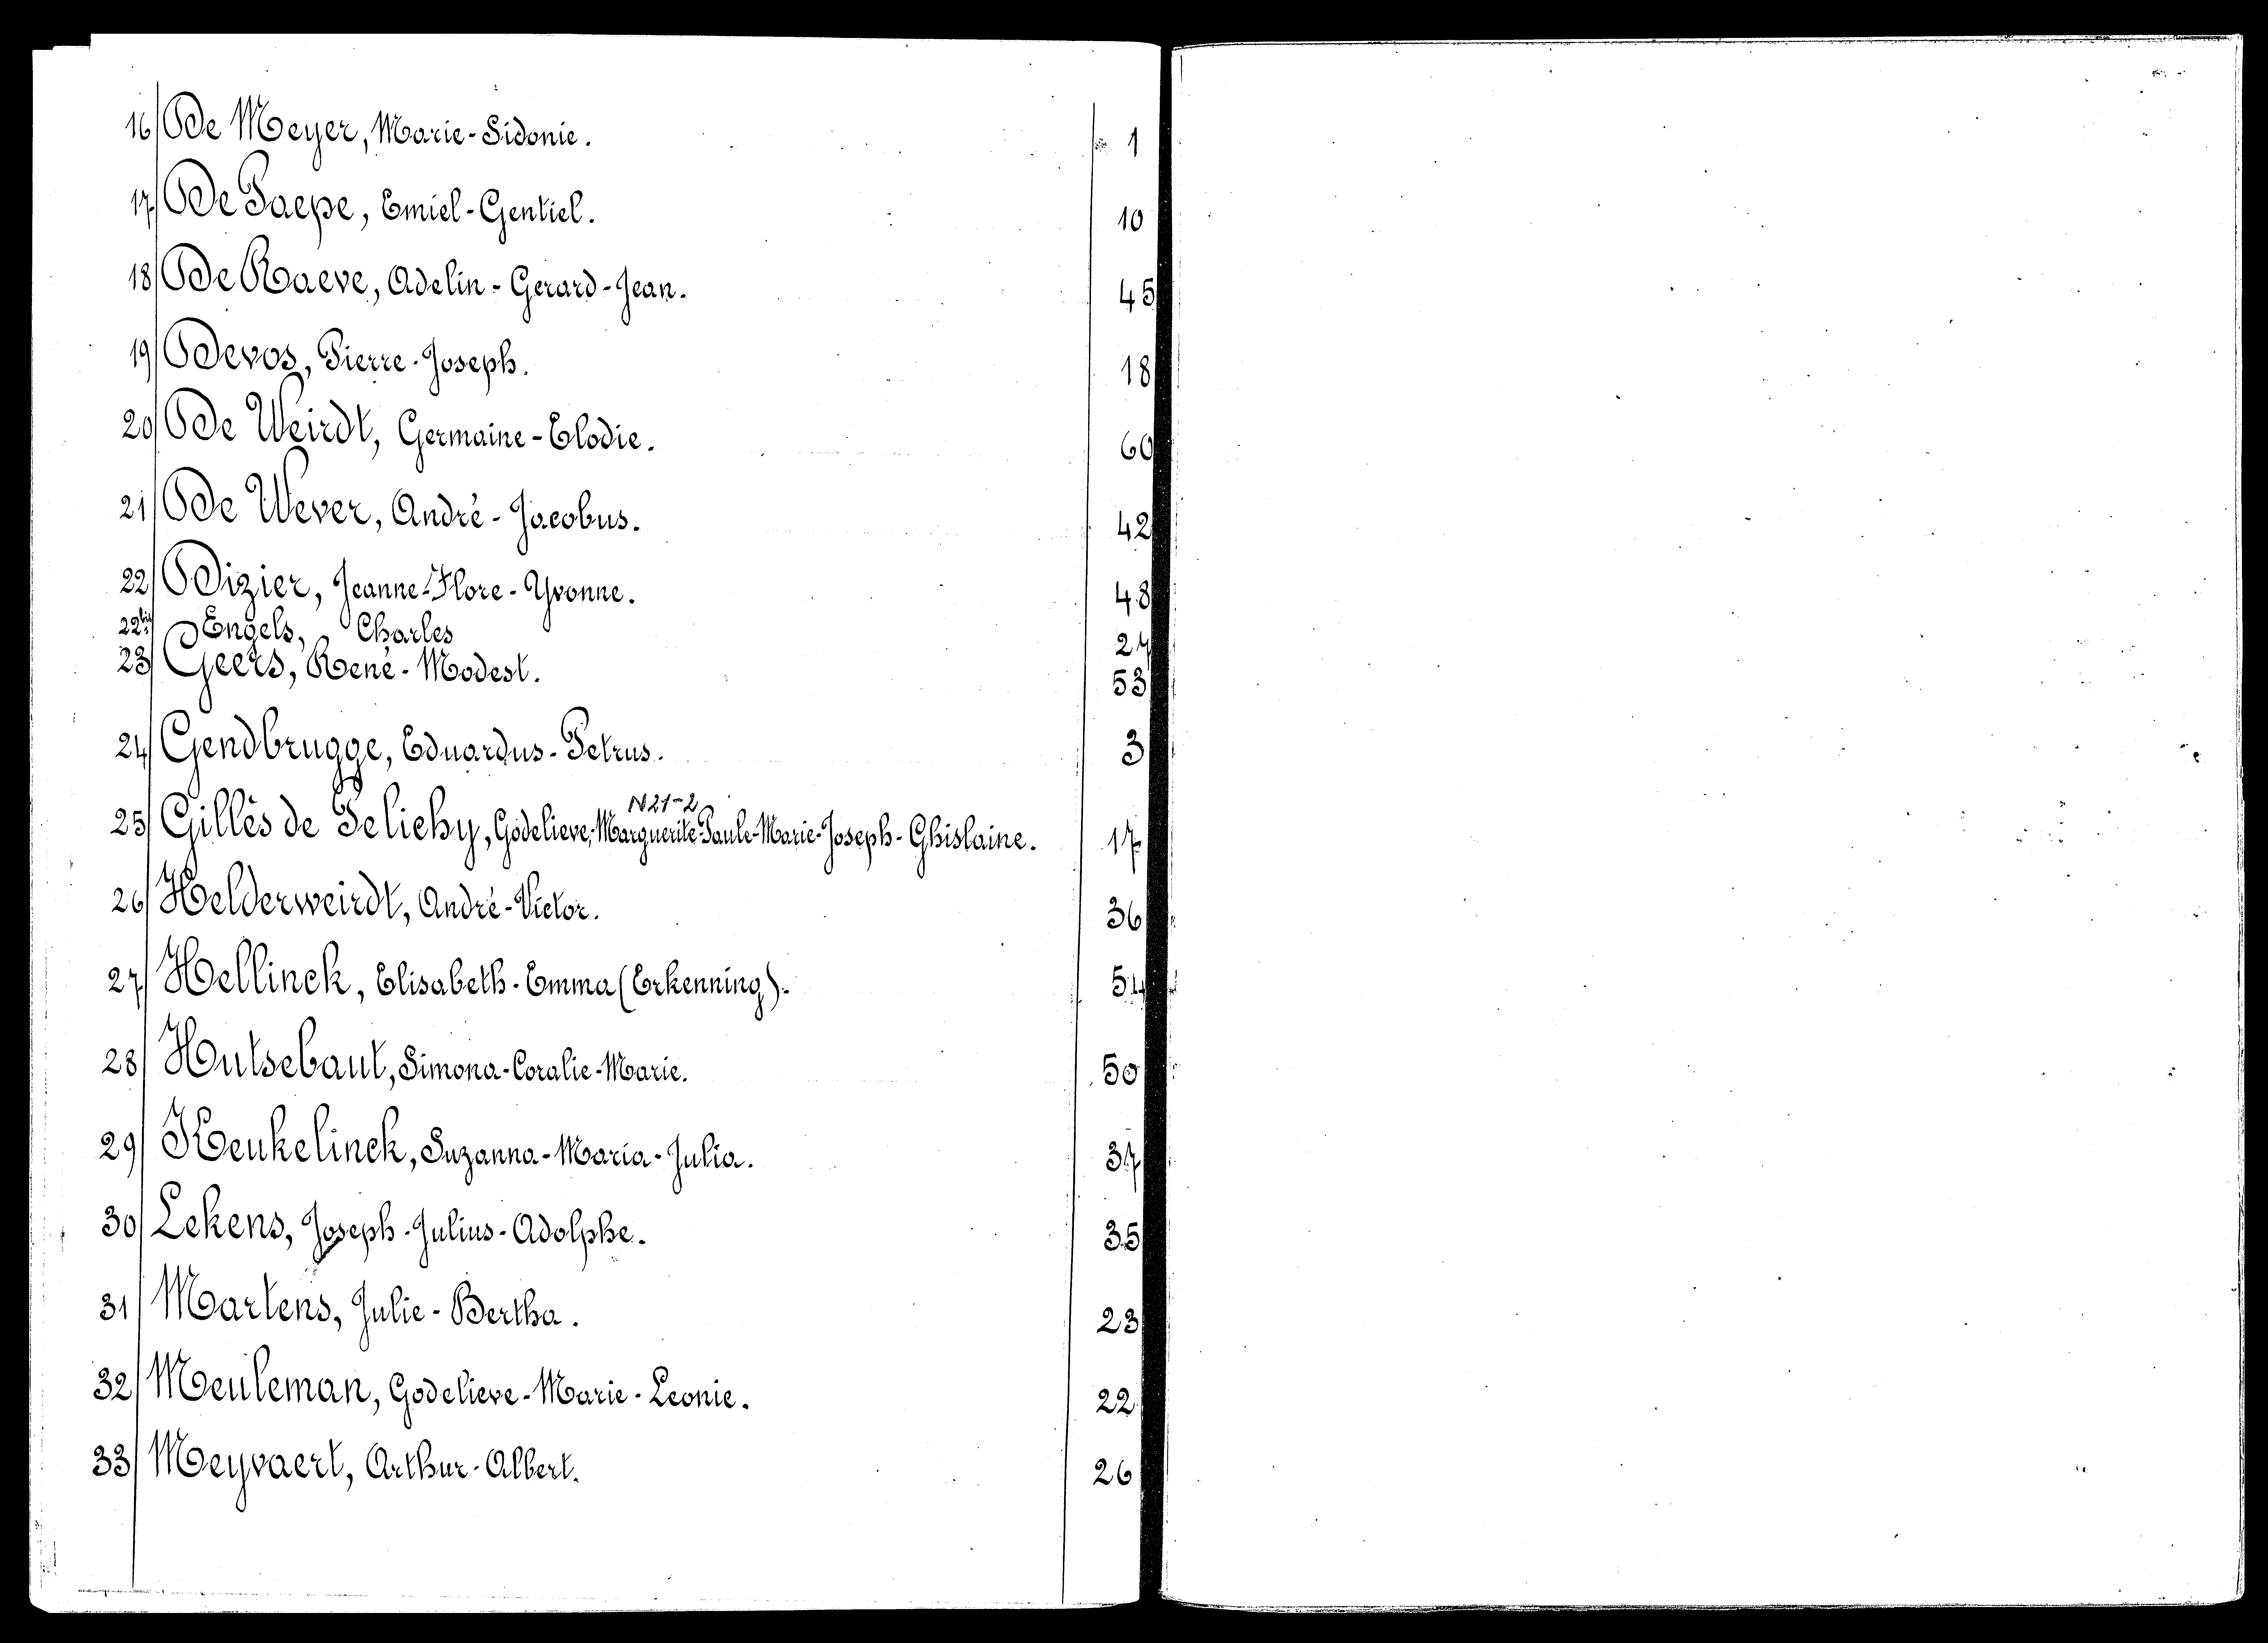 16 De Meyer, Marie-Sidonie. 1
17 De Paepe, Emiel-Gentiel. 10
18 De Raeve, Adelin-Gerard-Jean. 45
19 Devos, Pierre-Joseph. 18
20 De Weirdt, Germaine-Elodie. 60
21 De Wever, André-Jacobus. 42
22 Dizier, Jeanne-Flore-Yvonne. 48
22bis Engels, Charles 27
23 Geers, René-Modest. 53
24 Gendbrugge, Eduardus-Petrus. 3
N21-2
25 Gillès de Pelichy, Godelieve-Marguerite-Paule-Marie-Joseph-Ghislaine. 17
26 Helderweirdt, André-Victor. 36
27 Hellinck, Elisabeth-Emma (Erkenning). 54
28 Hutsebaut, Simona-Coralie-Marie. 50
29 Keukelinck, Suzanna-Maria-Julia. 37
30 Lekens, Joseph-Julius-Adolphe. 35
31 Martens, Julie-Bertha. 23
32 Meuleman, Godelieve-Marie-Leonie. 22
33 Meyvaert, Arthur-Albert. 26